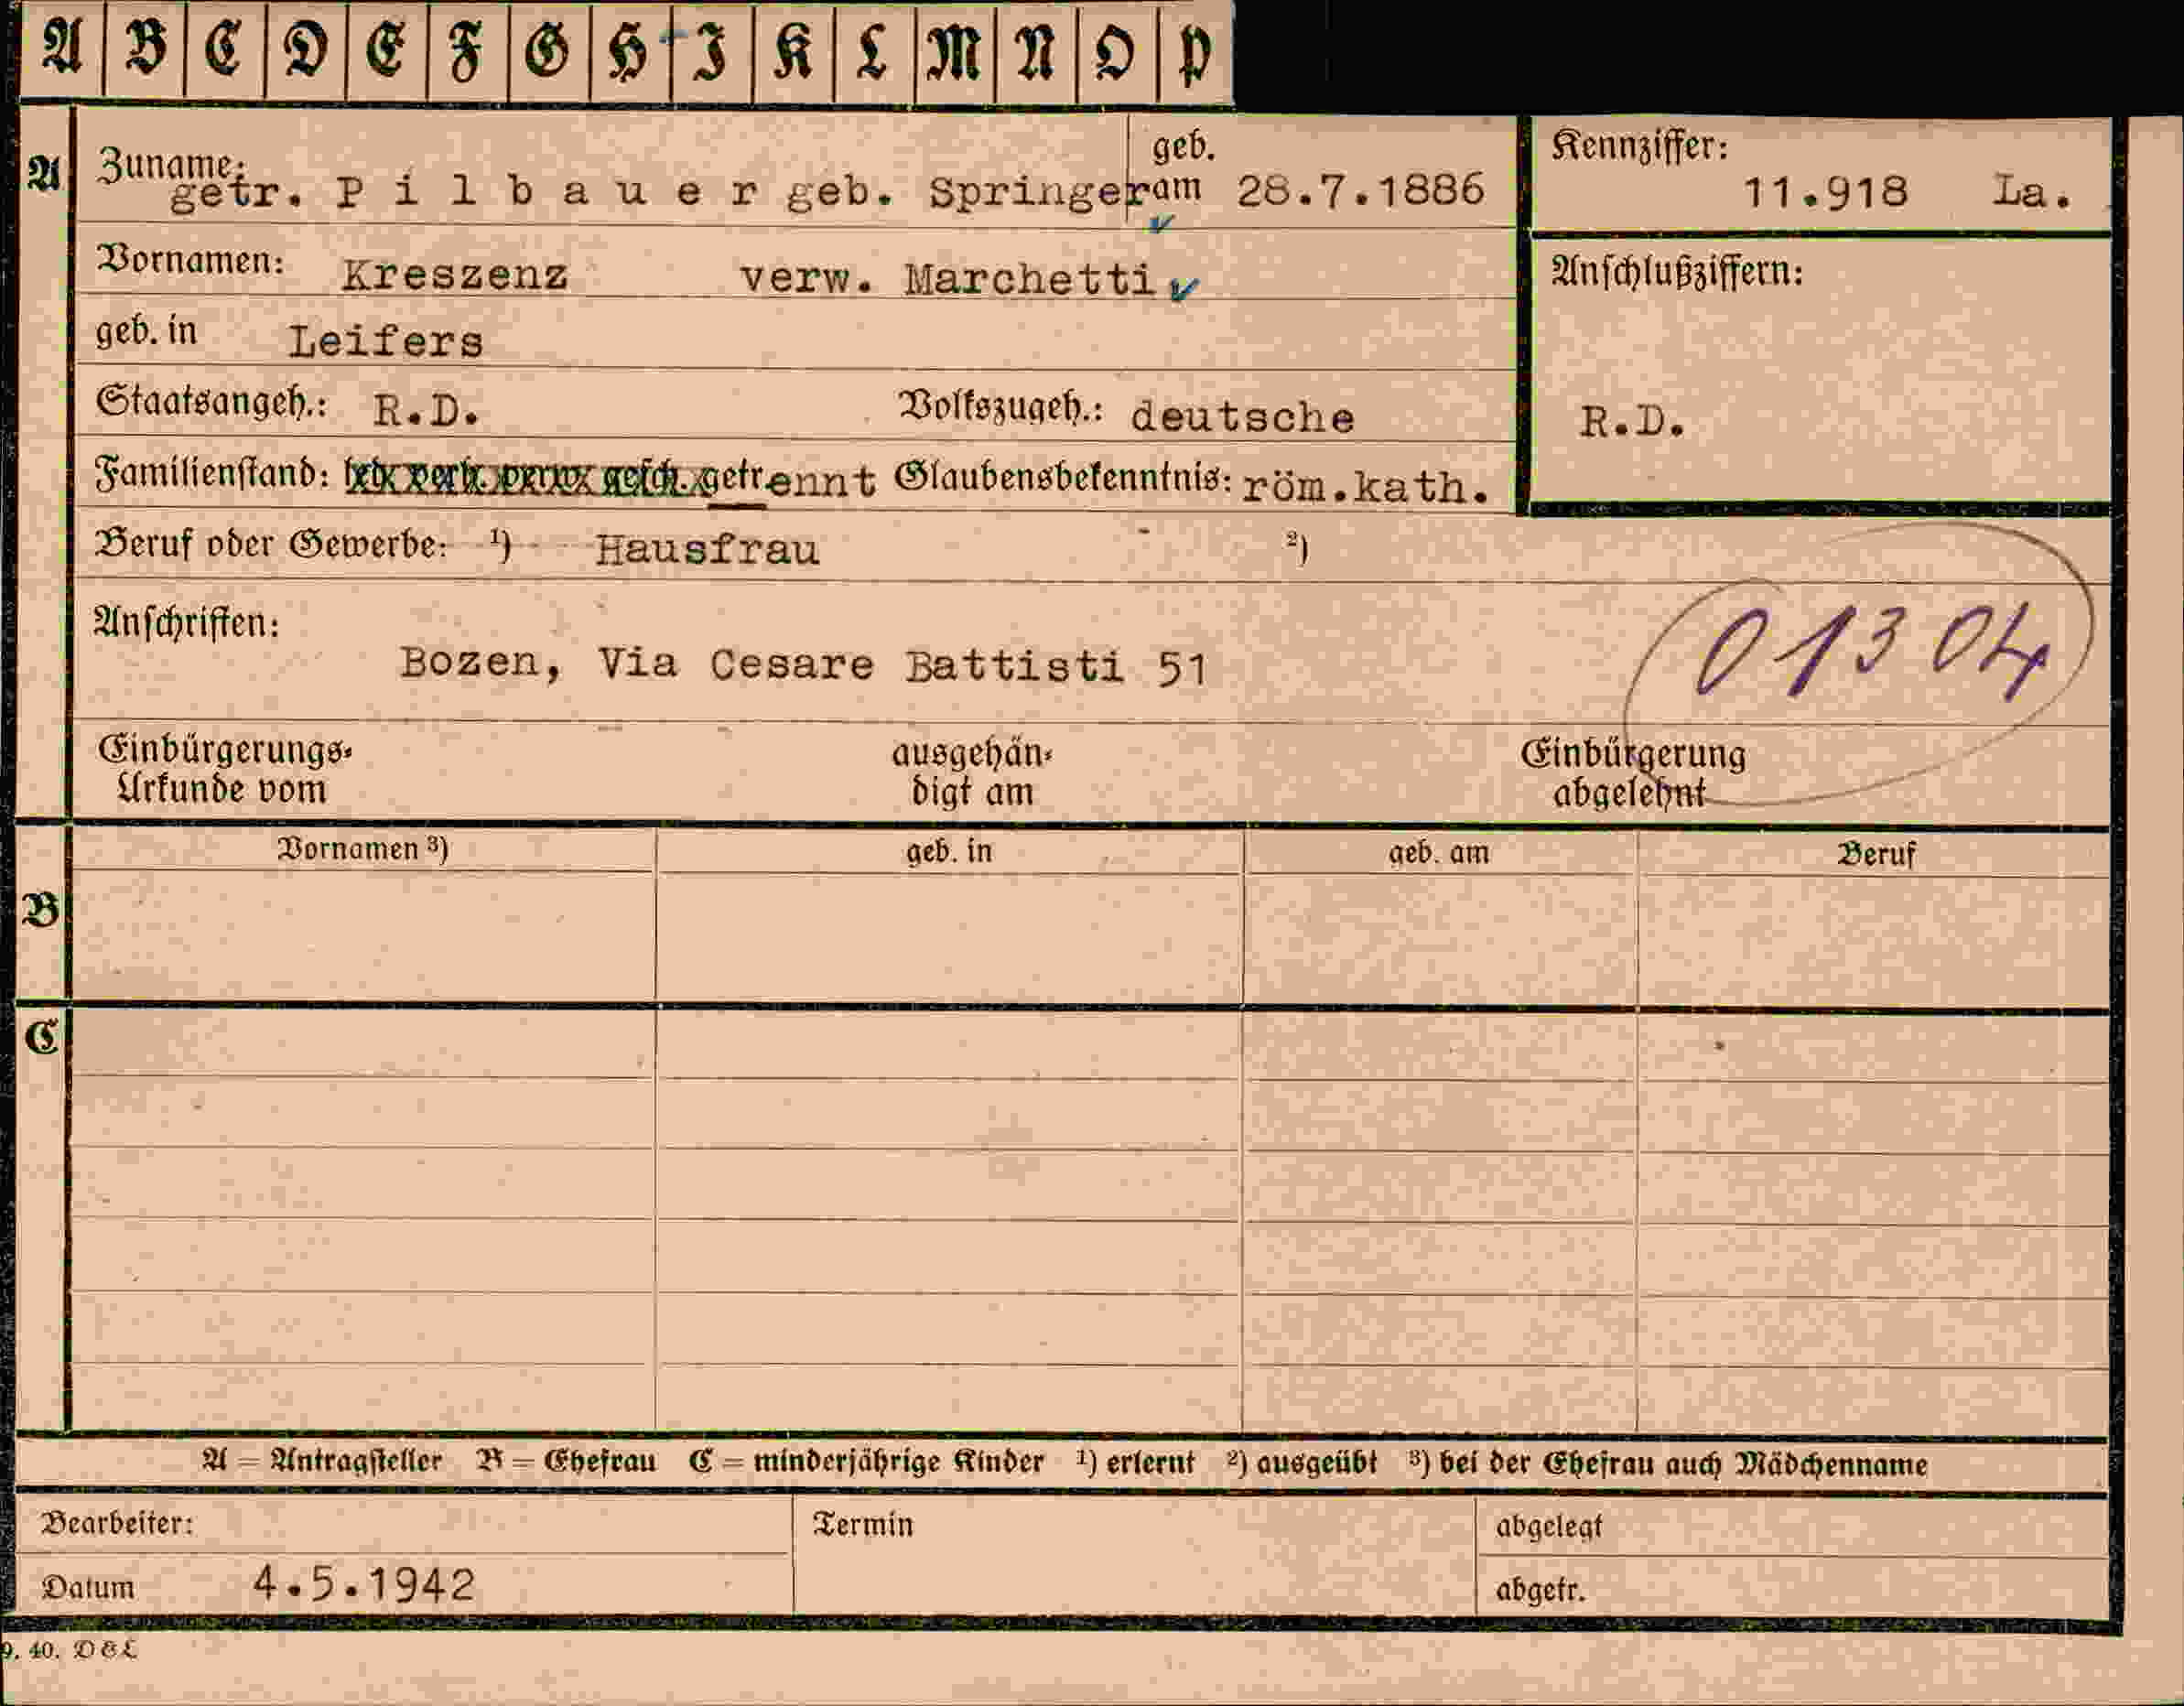 A B C D E F G H I K L M N O P
A Zuname: getr. P i l b a u e r geb. Springer geb. am 28.7.1886 Kennziffer: 11.918 La.
Vornamen: Kreszenz verw. Marchetti Anschlußziffern:
geb. in Leifers
Staatsangeh.: R.D. Volkszugeh.: deutsche R.D.
Familienstand: getrennt Glaubensbekenntnis: röm.kath.
Beruf oder Gewerbe: ¹) Hausfrau ²)
Anschriften: 01304
Bozen, Via Cesare Battisti 51
Einbürgerungs- ausgehän- Einbürgerung
Urkunde vom digt am abgelehnt
Vornamen ³) geb. in geb. am Beruf
B
C
A = Antragsteller B = Ehefrau C = minderjährige Kinder ¹) erlernt ²) ausgeübt ³) bei der Ehefrau auch Mädchenname
Bearbeiter: Termin abgelegt
Datum 4.5.1942 abgetr.
9. 40. D&L